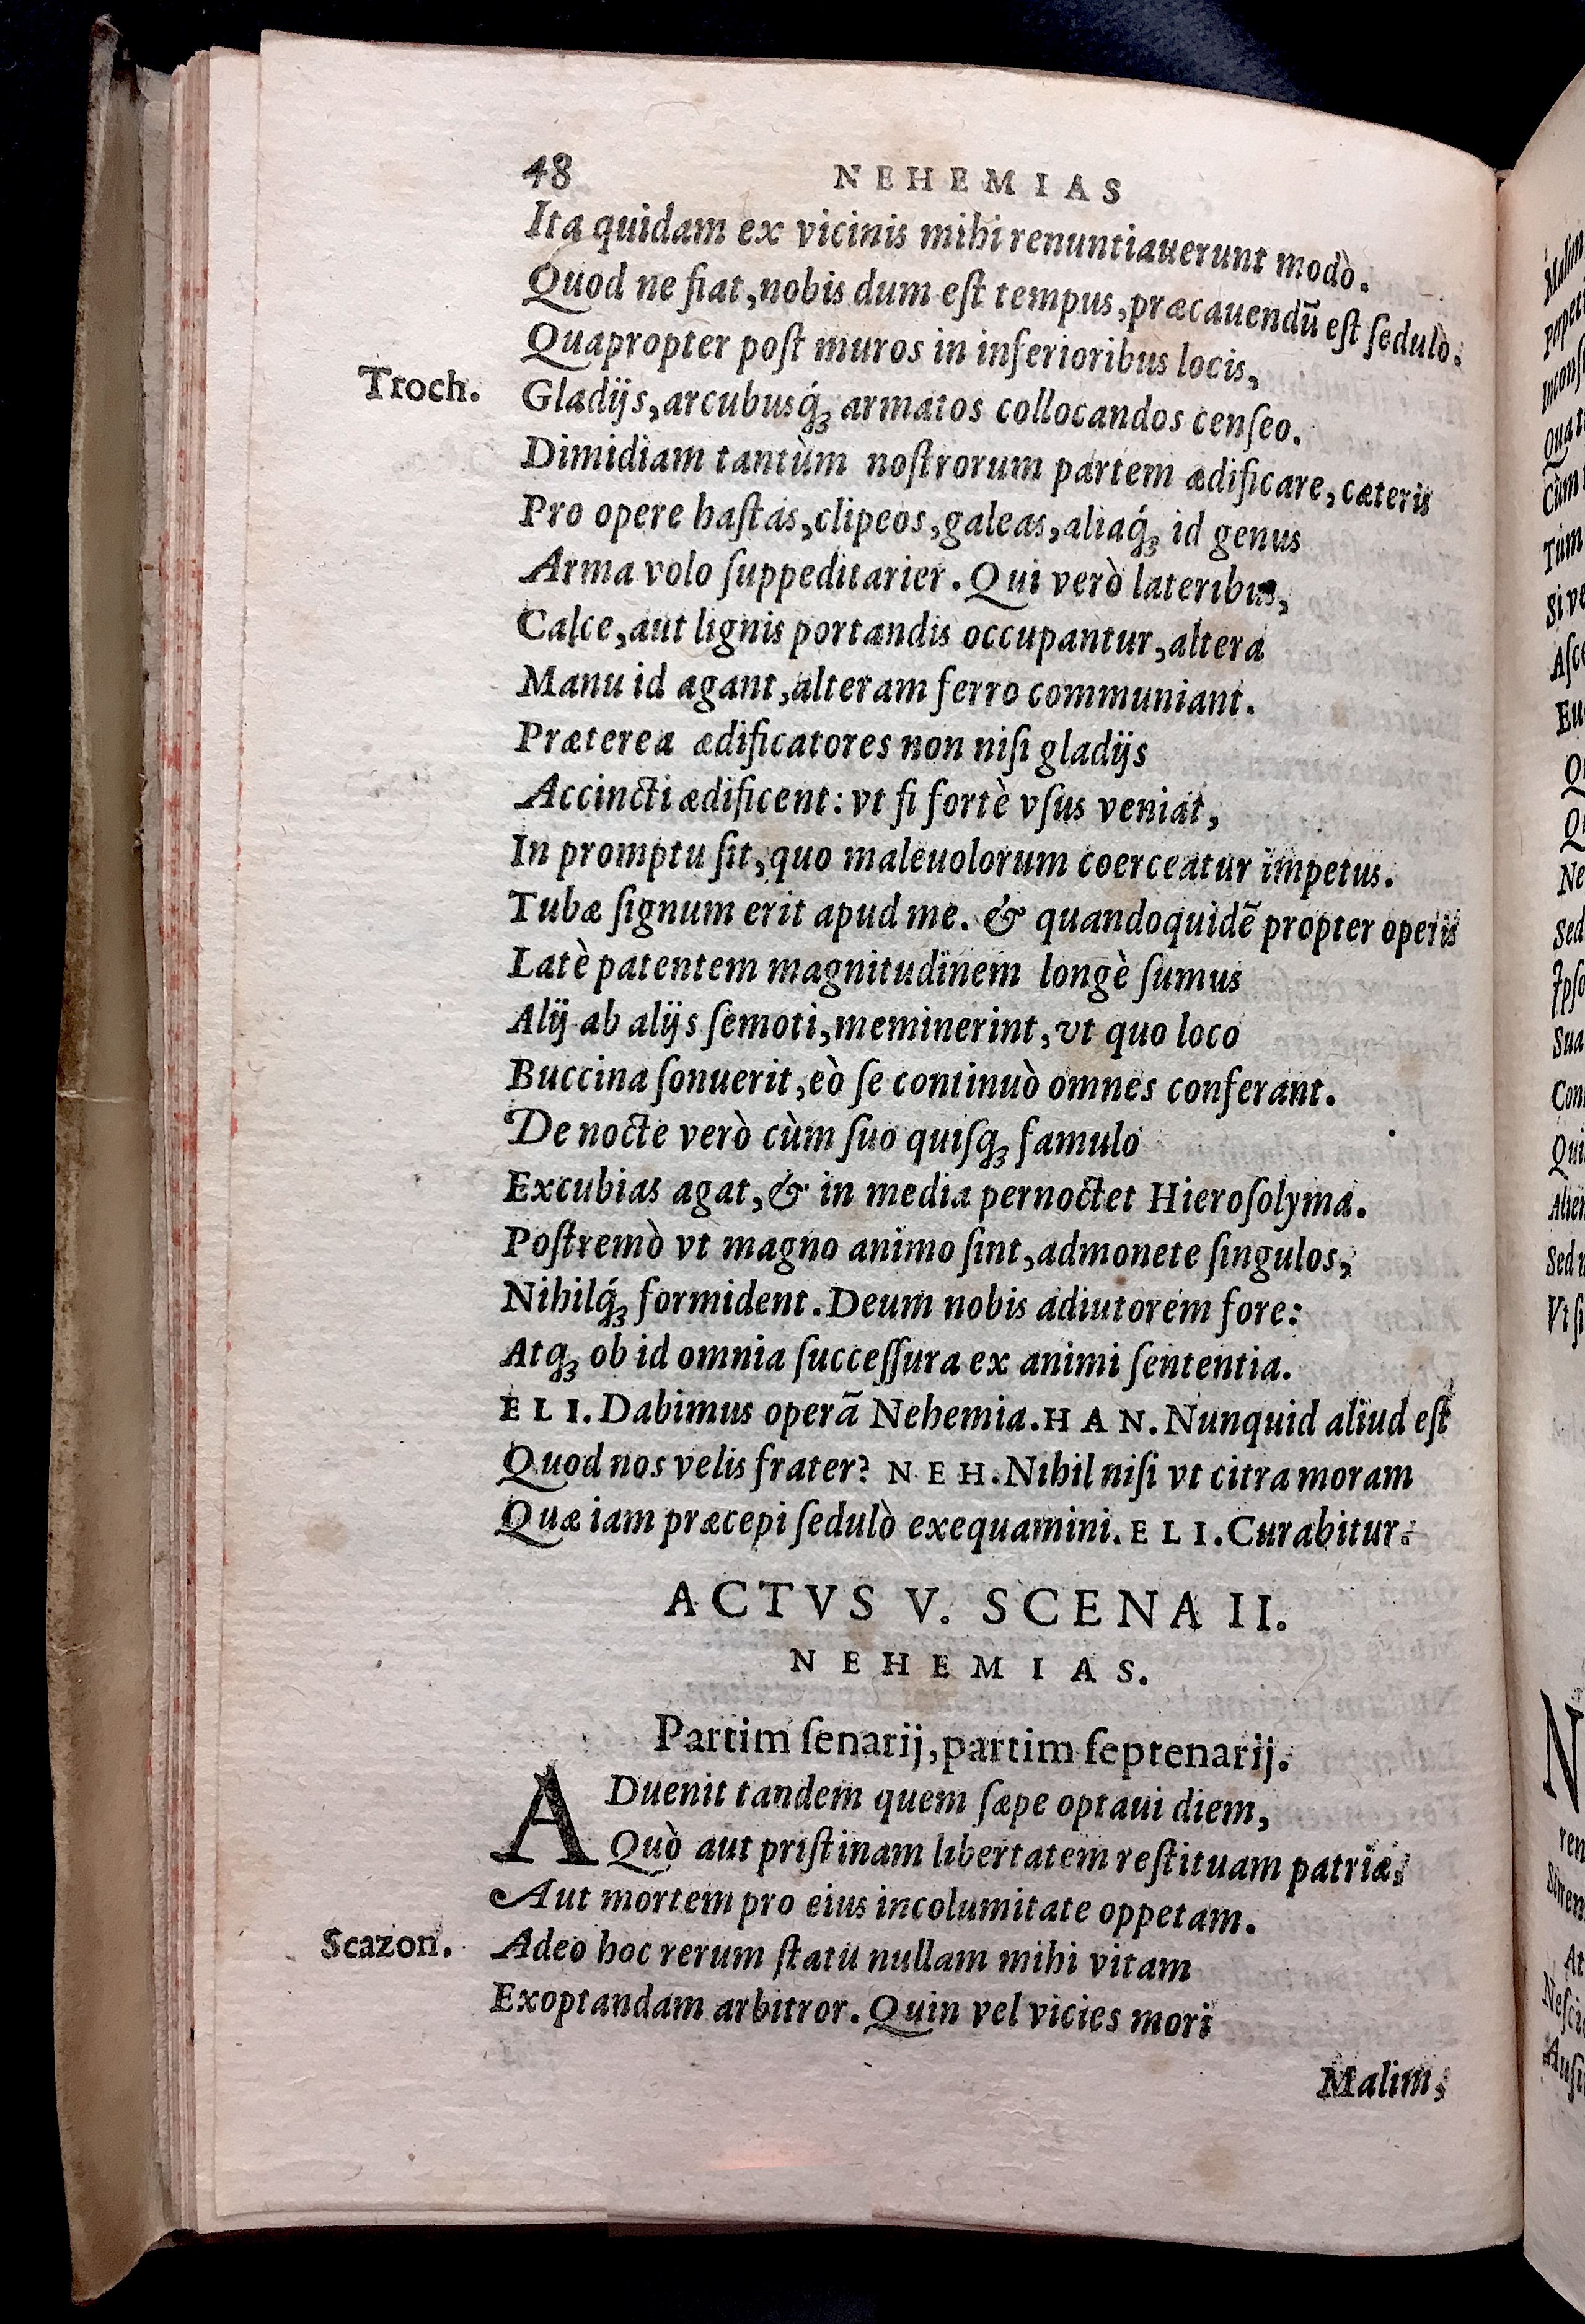 48 NEHEMIAS
Ita quidam ex vicinis mihi renuntiauerunt modò.
Quod ne fiat, nobis dum eſt tempus, præcauendū eſt ſedulò.
Quapropter poſt muros in inferioribus locis,
Troch. Gladijs, arcubusq́ꝫ armatos collocandos cenſeo.
Dimidiam tantùm noſtrorum partem ædificare, cæteris
Pro opere haſtas, clipeos, galeas, aliaq́ꝫ id genus
Arma volo ſuppeditarier. Qui verò lateribus,
Calce, aut lignis portandis occupantur, altera
Manu id agant, alteram ferro communiant.
Præterea ædificatores non niſi gladijs
Accincti ædificent: vt ſi fortè vſus veniat,
In promptu ſit, quo maleuolorum coerceatur impetus.
Tubæ ſignum erit apud me. & quandoquidē propter operis
Latè patentem magnitudinem longè ſumus
Alij ab alijs ſemoti, meminerint, vt quo loco
Buccina ſonuerit, eò ſe continuò omnes conferant.
De nocte verò cùm ſuo quiſqꝫ famulo
Excubias agat, & in media pernoctet Hieroſolyma.
Poſtremò vt magno animo ſint, admonete ſingulos,
Nihilq́ꝫ formident. Deum nobis adiutorem fore:
Atqꝫ ob id omnia ſucceſſura ex animi ſententia.
ELI. Dabimus operā Nehemia. HAN. Nunquid aliud eſt
Quod nos velis frater? NEH. Nihil niſi vt citra moram
Quæ iam præcepi ſedulò exequamini. ELI. Curabitur.
ACTVS V. SCENA II.
NEHEMIAS.
Partim ſenarij, partim ſeptenarij.
ADuenit tandem quem ſæpe optaui diem,
Quò aut priſtinam libertatem reſtituam patriæ,
Aut mortem pro eius incolumitate oppetam.
Scazon. Adeo hoc rerum ſtatu nullam mihi vitam
Exoptandam arbitror. Quin vel vicies mori
Malim,